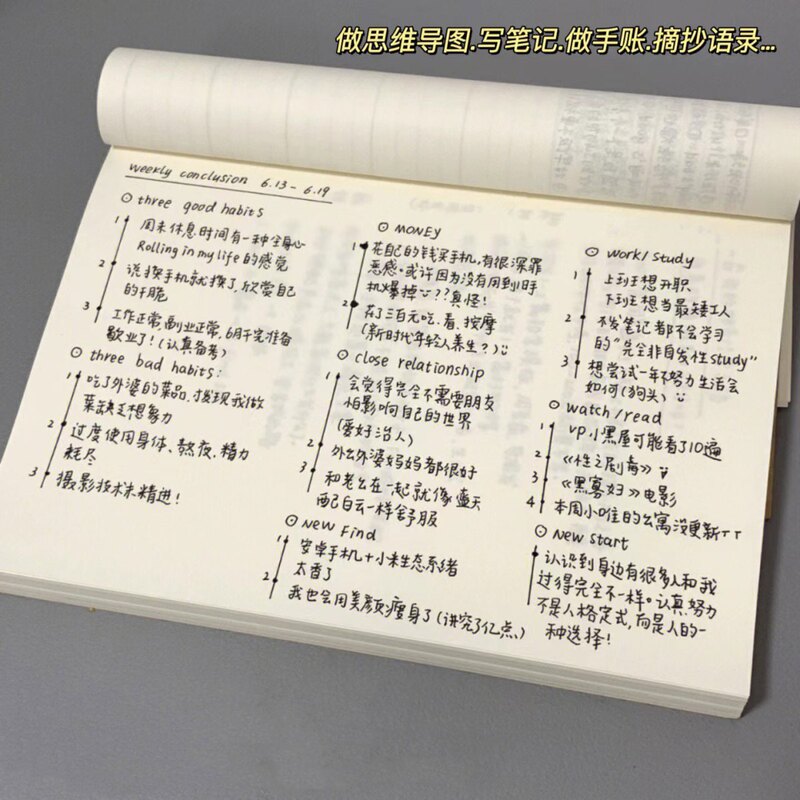 做思维导图.写笔记.做手账.摘抄语录...
weekly conclusion 6.13 - 6.19
three good habits
1 周末休息时间有一种全身心
Rolling in my life 的感觉
2 说换手机就换了,欣赏自己
的干脆
3 工作正常,副业正常,6月干完准备
歇业了!(认真备考)
three bad habits:
1 吃了外婆的菜品,发现我做
菜缺乏想象力
2 过度使用身体、熬夜,精力
耗尽
3 摄影技术未精进!
MONEY
1 花自己的钱买手机,有很深罪
恶感。或许因为没有用到旧手
机爆掉??真怪!
2 花了三百元吃、看、按摩
(新时代年轻人养生?)
close relationship
1 会觉得完全不需要朋友
怕影响自己的世界
(爱好治人)
2 外公外婆妈妈都很好
3 和老公在一起就像蓝天
配白云一样舒服
New Find
1 安卓手机+小米生态系统
太香了
2 我也会用美颜瘦身了(讲究了亿点)
work/study
1 上到王想升职
下到王想当最矮工人
2 不发笔记都不会学习
的“完全非自发性study”
3 想尝试一年不努力生活会
如何(狗头)
watch/read
1 VP小黑屋可能看了10遍
2 《性之剧毒》
3 《黑寡妇》电影
4 本周小唯的公寓没更新TT
New start
认识到身边有很多人和我
过得完全不一样。认真努力
不是人格定式,而是人的一
种选择!